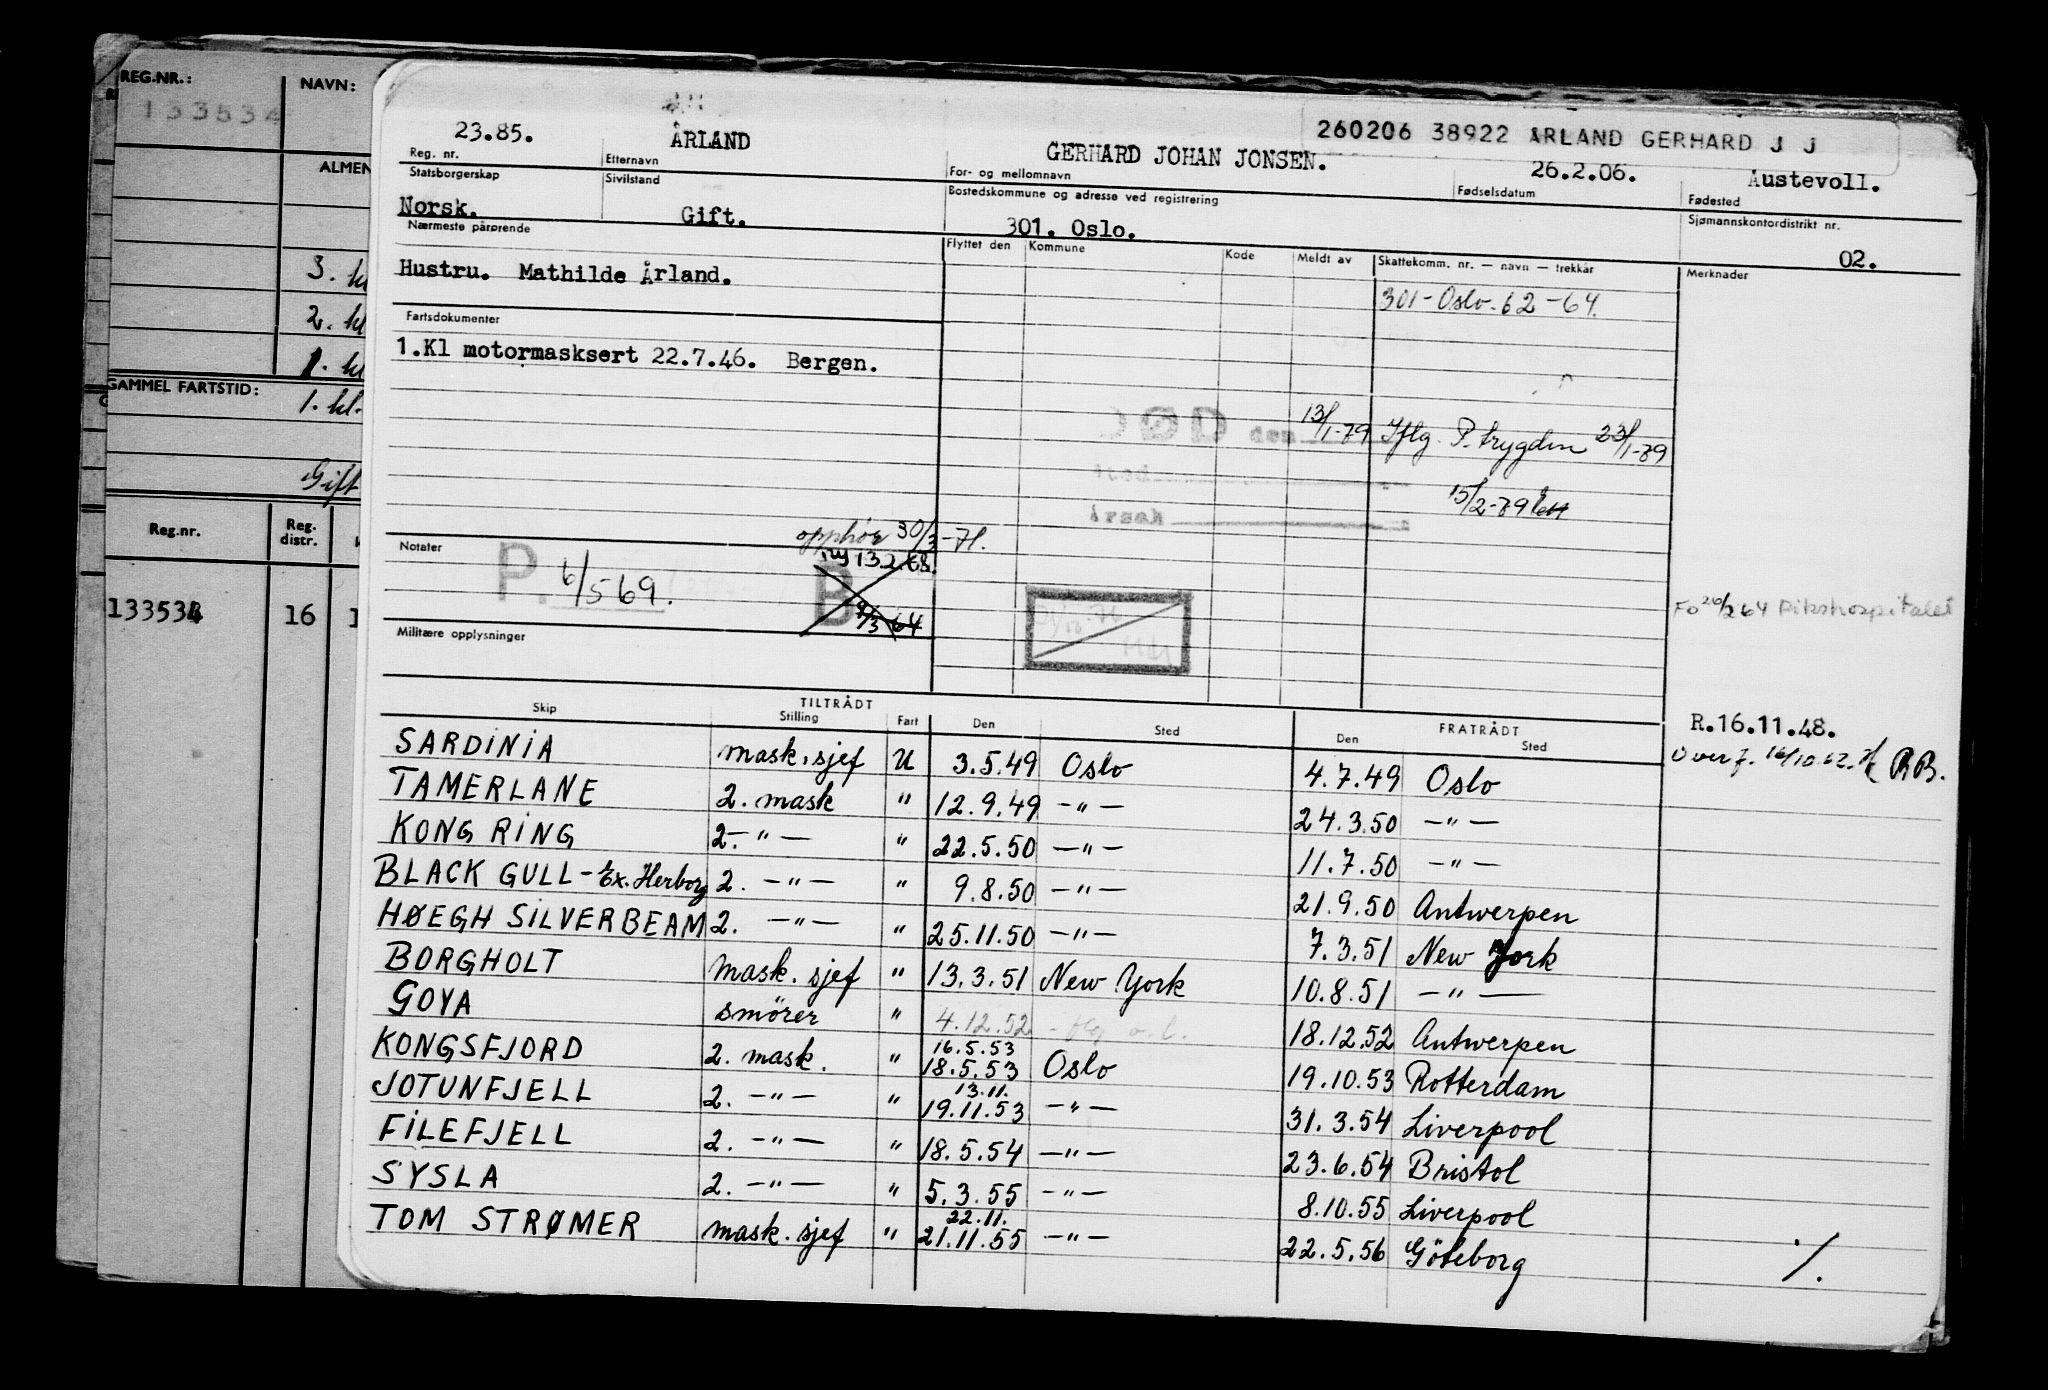 REG.NR.: NAVN:
133534
ALMEN
3. kl
2. kl
1. kl
GAMMEL FARTSTID:
1. kl.
Gift
Reg.nr. Reg. distr.
133534 16 1
260206 38922 ÅRLAND GERHARD J J
23.85. ÅRLAND GERHARD JOHAN JONSEN. 26.2.06. Austevoll.
Reg. nr. Etternavn For- og mellomnavn Fødselsdatum Fødested
Statsborgerskap Sivilstand Bostedskommune og adresse ved registrering Sjømannskontordistrikt nr.
Norsk. Gift. 301. Oslo. 02.
Nærmeste pårørende Flyttet den Kommune Kode Meldt av Skattekomm. nr. — navn — trekkår Merknader
Hustru. Mathilde Årland.
301-Oslo. 62-64.
Fartsdokumenter
1.Kl motormasksert 22.7.46. Bergen.
DØD den 13/1-79 Iflg. P. trygden 23/1-79
Sted
15/2-79
Årsak
opphør 30/3-71.
Notater
13.2.68.
P. 6/5 69.
B 9/3 64
Fo 26/2 64 Rikshospitalet
Militære opplysninger
R.16.11.48.
Overf. 16/10 62. RB.
Skip TILTRÅDT Stilling Fart Den Sted FRATRÅDT Den Sted
SARDINIA mask.sjef U 3.5.49 Oslo 4.7.49 Oslo
TAMERLANE 2. mask " 12.9.49 —"— 24.3.50 —"—
KONG RING 2.—"— " 22.5.50 —"— 11.7.50 —"—
BLACK GULL - Ex. Herborg 2. —"— " 9.8.50 —"— 21.9.50 Antwerpen
HØEGH SILVERBEAM 2. —"— " 25.11.50 —"— 7.3.51 New York
BORGHOLT mask. sjef " 13.3.51 New York 10.8.51 —"—
GOYA smörer " 4.12.52 18.12.52 Antwerpen
KONGSFJORD 2. mask. " 16.5.53 18.5.53 Oslo 19.10.53 Rotterdam
JOTUNFJELL 2. —"— " 13.11. 19.11.53 —"— 31.3.54 Liverpool
FILEFJELL 2. —"— " 18.5.54 —"— 23.6.54 Bristol
SYSLA 2. —"— " 5.3.55 —"— 8.10.55 Liverpool
TOM STRØMER mask. sjef " 22.11. 21.11.55 —"— 22.5.56 Göteborg
./.